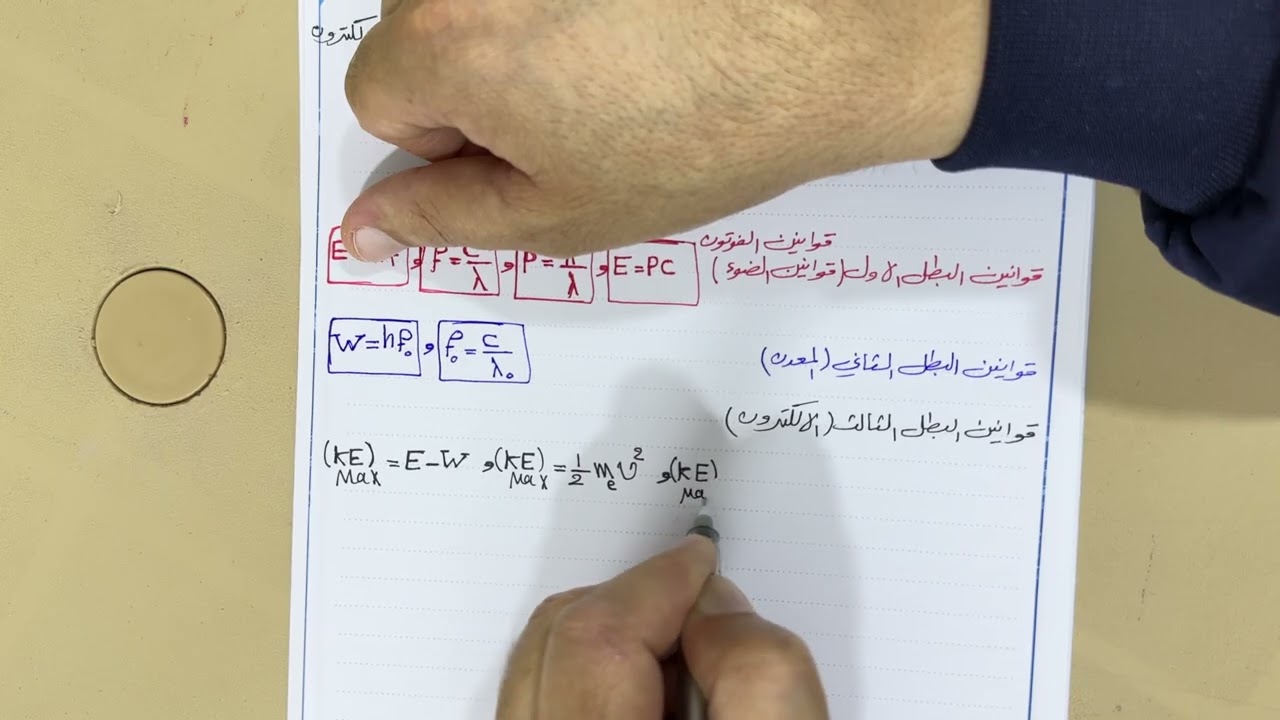 لكترون
قوانين الفوتون
قوانين البطل الاول (قوانين الضوء)
E و f = C/λ و P = h/λ و E = PC
قوانين البطل الثاني (المعدن)
W = hf₀ و f₀ = C/λ₀
قوانين البطل الثالث (الالكترون)
(KE)Max = E – W و (KE)Max = 1/2 mₑ v² و (KE)Ma